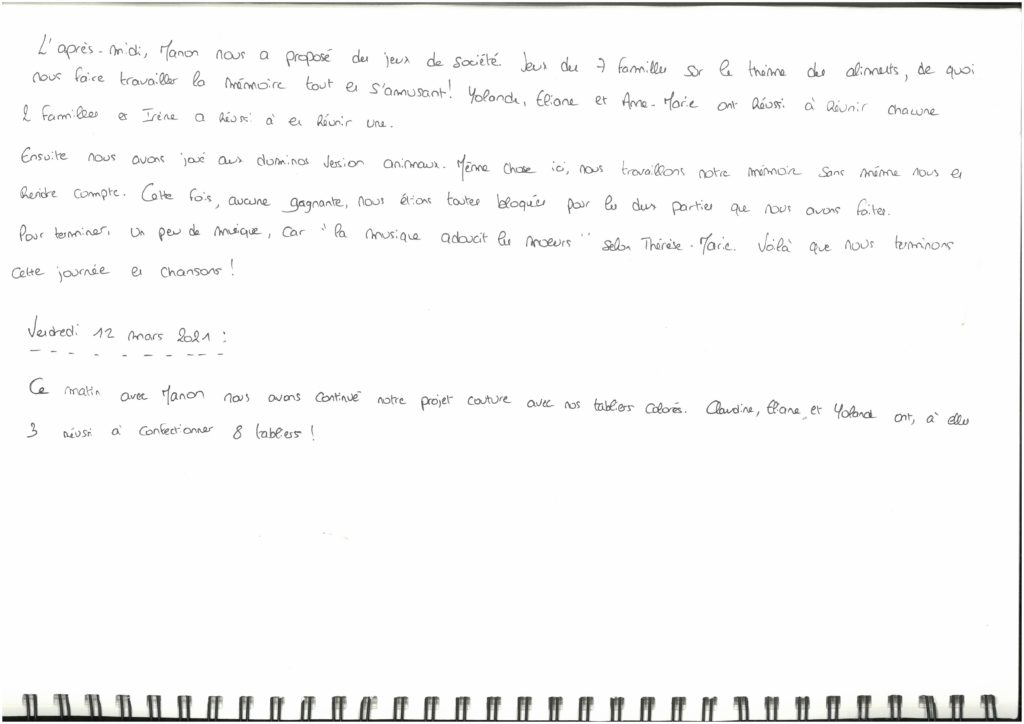 L'après-midi, Manon nous a proposé des jeux de société. Jeux des 7 familles sur le thème des aliments, de quoi
nous faire travailler la mémoire tout en s'amusant! Yolande, Eliane et Anne-Marie ont réussi à réunir chacune
2 familles et Irène a réussi à en réunir une.
Ensuite nous avons joué aux dominos version animaux. Même chose ici, nous travaillons notre mémoire sans même nous en
rendre compte. Cette fois, aucune gagnante, nous étions toutes bloquées pour les deux parties que nous avons faites.
Pour terminer, un peu de musique, car "la musique adoucit les moeurs" selon Thérèse-Marie. Voilà que nous terminons
cette journée en chansons!
Vendredi 12 mars 2021 :
Ce matin avec Manon nous avons continué notre projet couture avec nos tabliers colorés. Claudine, Eliane, et Yolande ont, à elles
3 réussi à confectionner 8 tabliers!